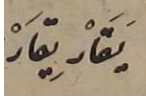 يَقَارْ يِقَارْ